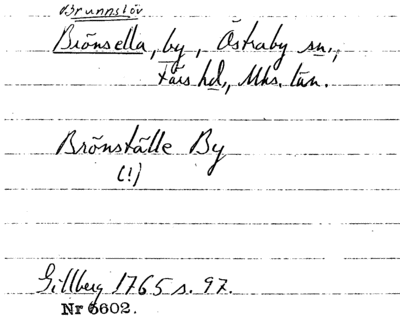 Brunnslöv
Brönsella, by, Östraby sn.,
Färs hd., Mhs. län.
Brönställe By
(!)
Gillberg 1765 s. 97.
Nr 6602.